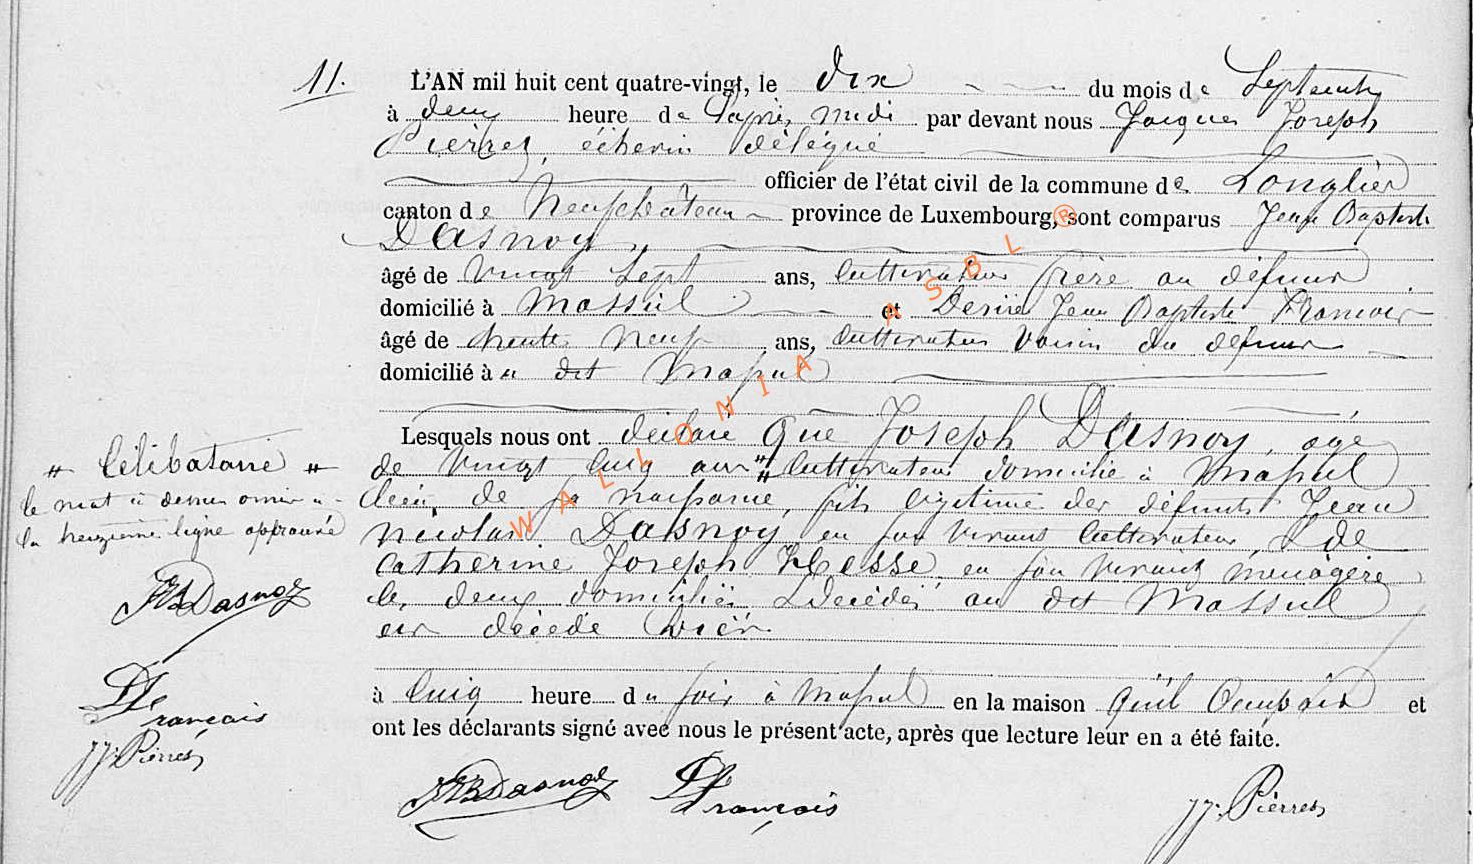 11. L'AN mil huit cent quatre-vingt, le dix du mois de Septembre
à deux heure de l'après midi par devant nous Jacques Joseph
Pièrres, échevin délégué
officier de l'état civil de la commune de Longlier
canton de Neufchâteau province de Luxembourg, sont comparus Jean Baptiste
Dasnoy,
âgé de vingt sept ans, cultivateur frère au défunt
domicilié à Massul et Desiré Jean Baptiste François
âgé de trente neuf ans, cultivateur voisin du défunt
domicilié à u dit Massul
Lesquels nous ont déclaré que Joseph Dasnoy, agé
de vingt cinq ans " cultivateur domicilié à Massul
lieu de sa naissance, fils légitime des défunts Jean
Nicolas Dasnoy, en son vivant cultivateur, & de
Catherine Joseph Hesse, en son vivant ménagère
les deux domiciliés & décédés au dit Massul
est décédé hier
à cinq heure du soir à Massul en la maison qu'il occupait et
ont les déclarants signé avec nous le présent acte, après que lecture leur en a été faite.
JB Dasnoy D François JJ. Pièrres
" Célibataire "
le mot ci dessus omis à
la treizième ligne approuvé
JB Dasnoy
D François
JJ. Pièrres
WALLONIA ASBL ®